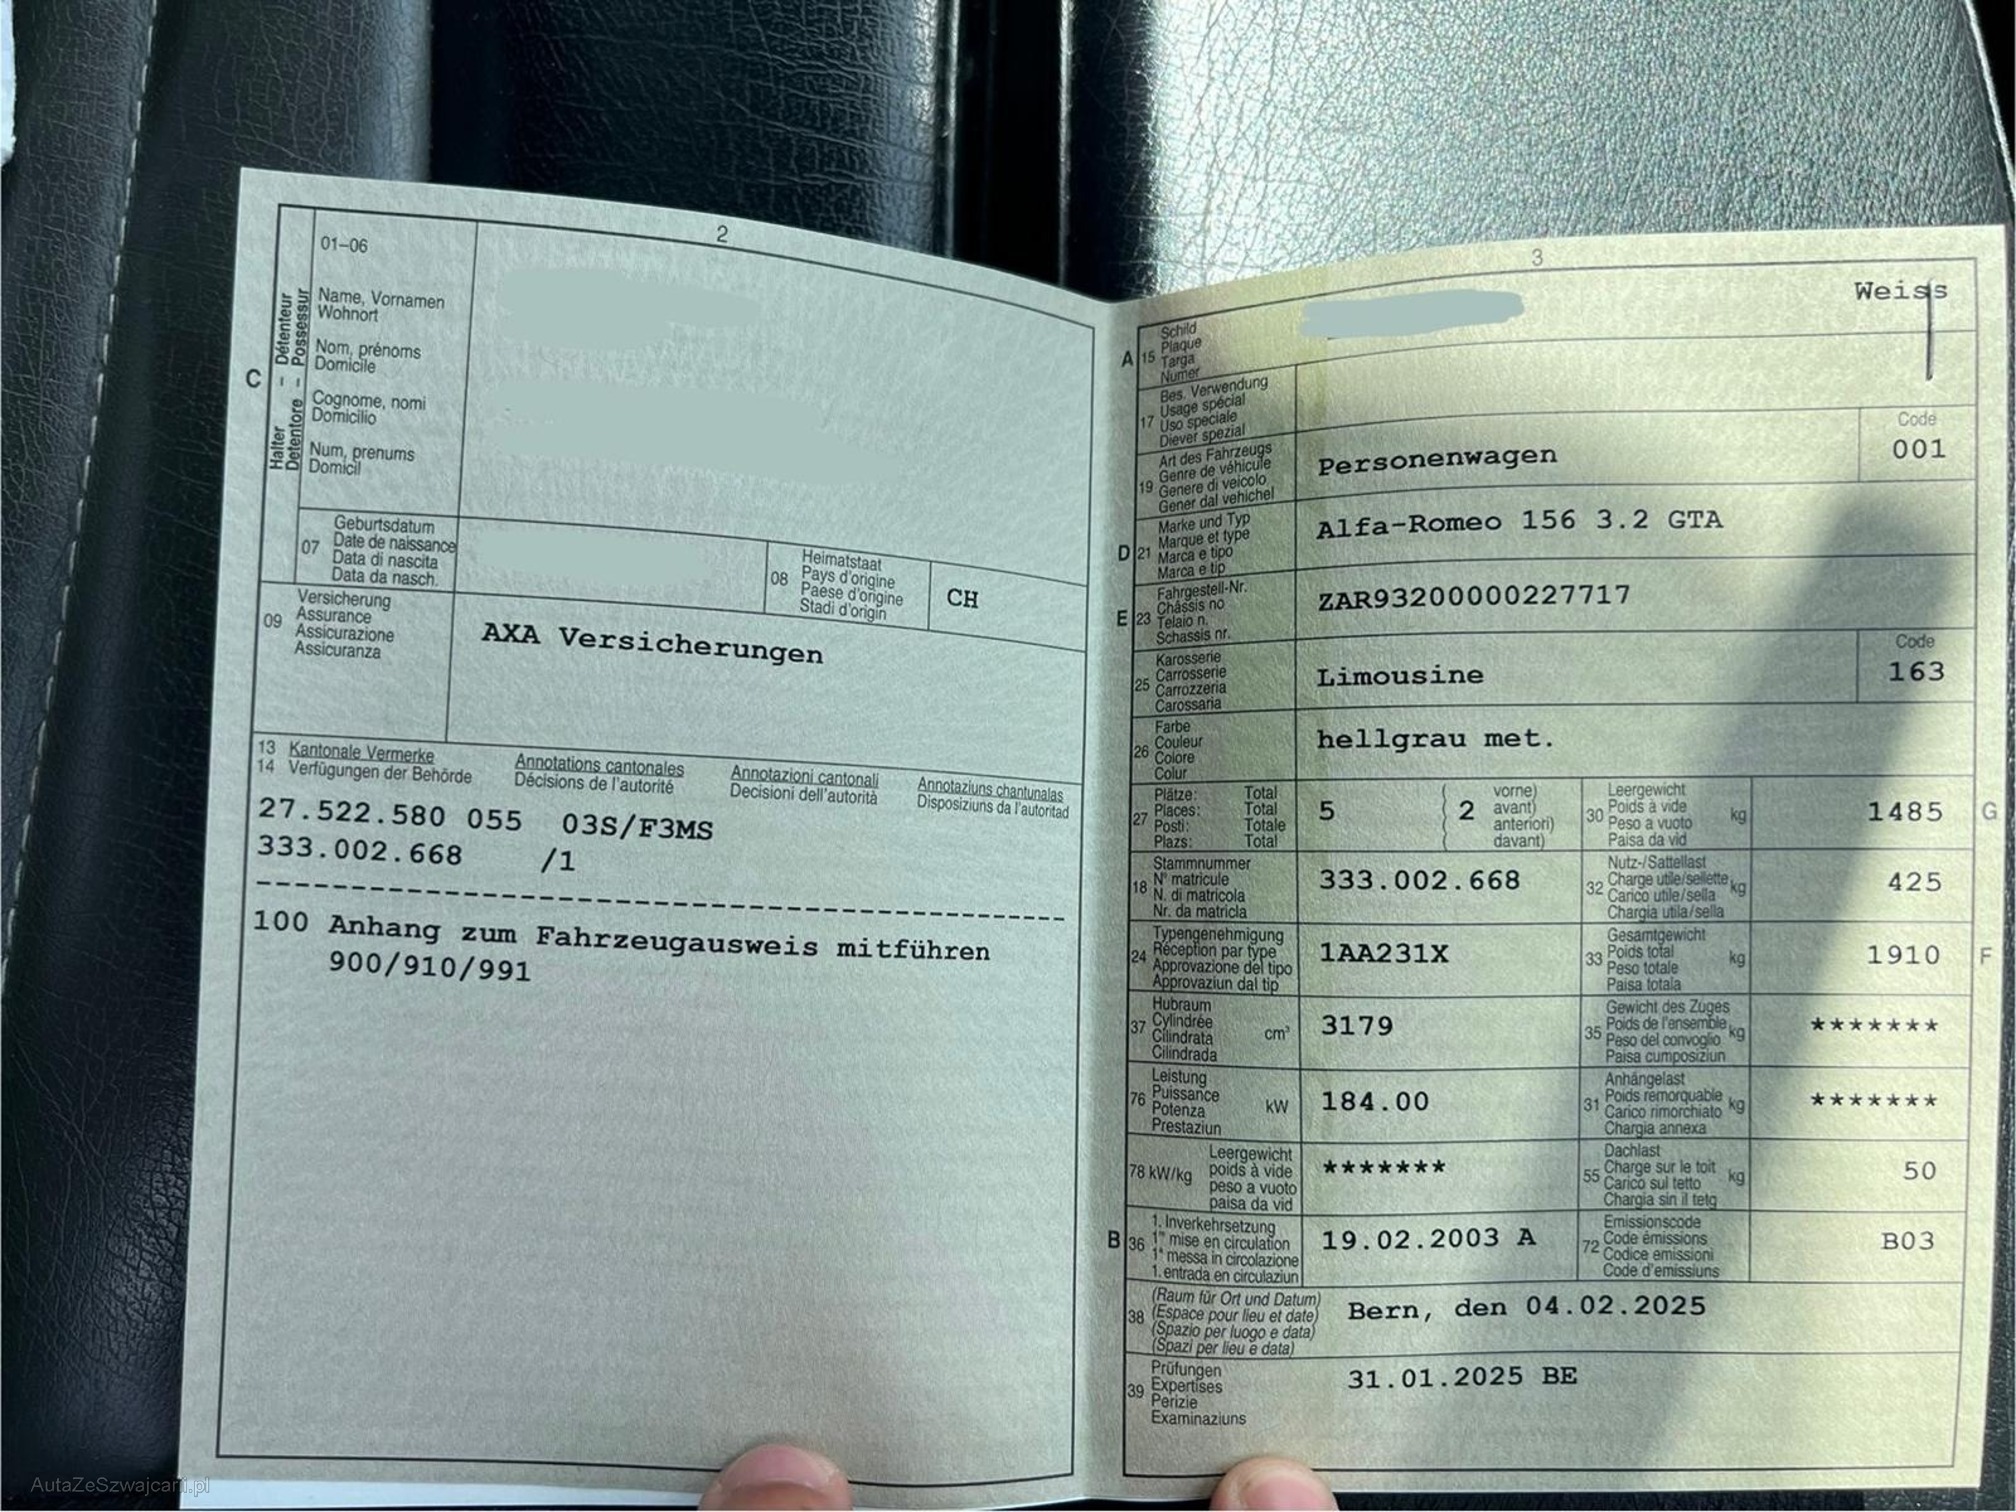 2
01–06
Name, Vornamen
Wohnort
Nom, prénoms
Domicile
Cognome, nomi
Domicilio
Num, prenums
Domicil
C
Halter – Détenteur
Detentore – Possessur
07
Geburtsdatum
Date de naissance
Data di nascita
Data da nasch.
08
Heimatstaat
Pays d'origine
Paese d'origine
Stadi d'origin
CH
09
Versicherung
Assurance
Assicurazione
Assicuranza
AXA Versicherungen
13 Kantonale Vermerke Annotations cantonales Annotazioni cantonali Annotaziuns chantunalas
14 Verfügungen der Behörde Décisions de l'autorité Decisioni dell'autorità Disposiziuns da l'autoritad
27.522.580 055 03S/F3MS
333.002.668 /1
100 Anhang zum Fahrzeugausweis mitführen
900/910/991
3
Weiss
A 15
Schild
Plaque
Targa
Numer
17
Bes. Verwendung
Usage spécial
Uso speciale
Diever spezial
19
Art des Fahrzeugs
Genre de véhicule
Genere di veicolo
Gener dal vehichel
Personenwagen
Code
001
D 21
Marke und Typ
Marque et type
Marca e tipo
Marca e tip
Alfa-Romeo 156 3.2 GTA
E 23
Fahrgestell-Nr.
Châssis no
Telaio n.
Schassis nr.
ZAR93200000227717
25
Karosserie
Carrosserie
Carrozzeria
Carossaria
Limousine
Code
163
26
Farbe
Couleur
Colore
Colur
hellgrau met.
27
Plätze: Total
Places: Total
Posti: Totale
Plazs: Total
5
( 2
vorne)
avant)
anteriori)
davant)
30
Leergewicht
Poids à vide
Peso a vuoto
Paisa da vid
kg
1485
G
18
Stammnummer
N° matricule
N. di matricola
Nr. da matricla
333.002.668
32
Nutz-/Sattellast
Charge utile/sellette
Carico utile/sella
Chargia utila/sella
kg
425
24
Typengenehmigung
Réception par type
Approvazione del tipo
Approvaziun dal tip
1AA231X
33
Gesamtgewicht
Poids total
Peso totale
Paisa totala
kg
1910
F
37
Hubraum
Cylindrée
Cilindrata
Cilindrada
cm³
3179
35
Gewicht des Zuges
Poids de l'ensemble
Peso del convoglio
Paisa cumposiziun
kg
*******
76
Leistung
Puissance
Potenza
Prestaziun
kW
184.00
31
Anhängelast
Poids remorquable
Carico rimorchiato
Chargia annexa
kg
*******
78 kW/kg
Leergewicht
poids à vide
peso a vuoto
paisa da vid
*******
55
Dachlast
Charge sur le toit
Carico sul tetto
Chargia sin il tetg
kg
50
B 36
1. Inverkehrsetzung
1re mise en circulation
1a messa in circolazione
1. entrada en circulaziun
19.02.2003 A
72
Emissionscode
Code émissions
Codice emissioni
Code d'emissiuns
B03
38
(Raum für Ort und Datum)
(Espace pour lieu et date)
(Spazio per luogo e data)
(Spazi per lieu e data)
Bern, den 04.02.2025
39
Prüfungen
Expertises
Perizie
Examinaziuns
31.01.2025 BE
AutaZeSzwajcarii.pl